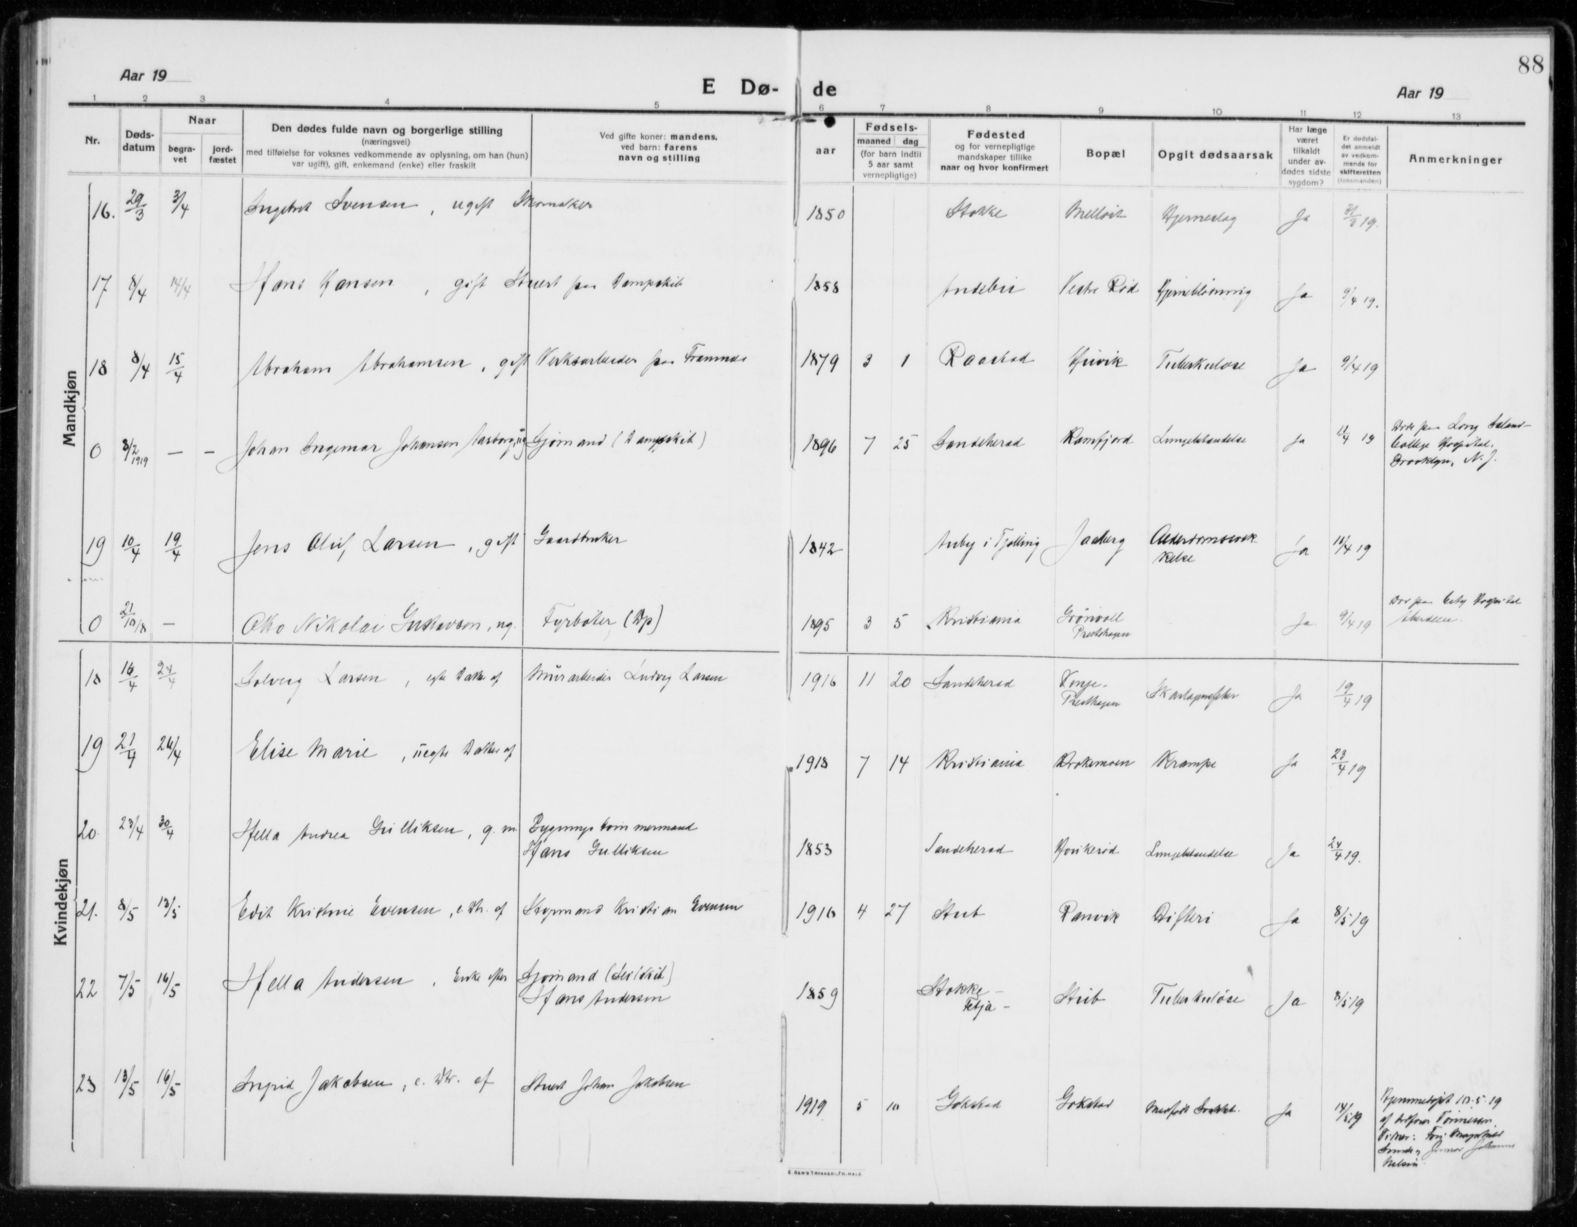 88
Aar 19
E Dø-
de
Aar 19
1 2 3 4 5 6 7 8 9 10 11 12 13
Nr.
Døds-
datum
Naar
begra-
vet
jord-
fæstet
Den dødes fulde navn og borgerlige stilling
(næringsvei)
med tilføielse for voksnes vedkommende av oplysning, om han (hun)
var ugift), gift, enkemand (enke) eller fraskilt
Ved gifte koner: mandens,
ved barn: farens
navn og stilling
aar
Fødsels-
maaned dag
(for barn indtil
5 aar samt
vernepligtige)
Fødested
og for vernepligtige
mandskaper tillike
naar og hvor konfirmert
Bopæl
Opgit dødsaarsak
Har læge
været
tilkaldt
under av-
dødes sidste
sygdom?
Er dødsfal-
det anmeldt
av vedkom-
mende for
skifteretten
(lensmanden)
Anmerkninger
Mandkjøn
16. 29/3 3/4 Ingebret Svensen, ugift Skomaker 1850 Stokke Ja
17 8/4 14/4 Hans Hansen, gift Stuert paa Dampskib 1858 Andebu Vestre Rød Ja 9/4 19.
18 8/4 15/4 Abraham Abrahamsen, gift Verksarbeider paa Framnæs 1879 3 1 Raastad Tuberkulose Ja 9/4 19
0 8/2 1919 — — Johan Ingemar Johansen Sjømand (Dampskib) 1896 7 25 Sandeherad Kamfjord Lungebetændelse Ja 19 Døde paa Long Island
College Hospital,
Brooklyn, N.J.
19 10/4 19/4 Jens Oluf Larsen, gift Gaardbruker 1842 i Tjølling Ja 19
0 21/10/18 — Nikolai Gustavsen, ug. Fyrbøter (Dp) 1895 3 5 Kristiania Grønvoll
Presthagen Ja 9/4 19 Død paa City Hospital
Aberdeen
Kvindekjøn
18 16/4 24/4 Solveig Larsen, egte Datter af Murarbeider Ludvig Larsen 1916 11 20 Sandeherad
Presthagen Ja 19/4 19
19 21/4 26/4 Elise Marie, uegte Datter af 1918 7 14 Kristiania Krampe Ja 23/4 19
20. 23/4 30/4 Hella Andrea Gulliksen, g. m. Bygningstømmermand
Hans Gulliksen 1853 Sandeherad Lungebetændelse Ja 24/4 19.
21. 8/5 13/5 Edit Kristine Evensen, e. Dtr. af Styrmand Kristian Evensen 1916 4 27 Stub Ranvik Difteri Ja 8/5 19
22 7/5 16/5 Hella Andersen, Enke efter Sjømand (Seilskib)
Hans Andersen 1859 Stokke —
Stub Tuberkuløse Ja 8/5 19
23 13/5 16/5 Ingrid Jakobsen, e. Dtr. af Stuert Johan Jakobsen 1919 5 10 Gokstad Gokstad Medfødt Ja 14/5 19 Hjemmedøpt 10.5.19
af Tønnesen